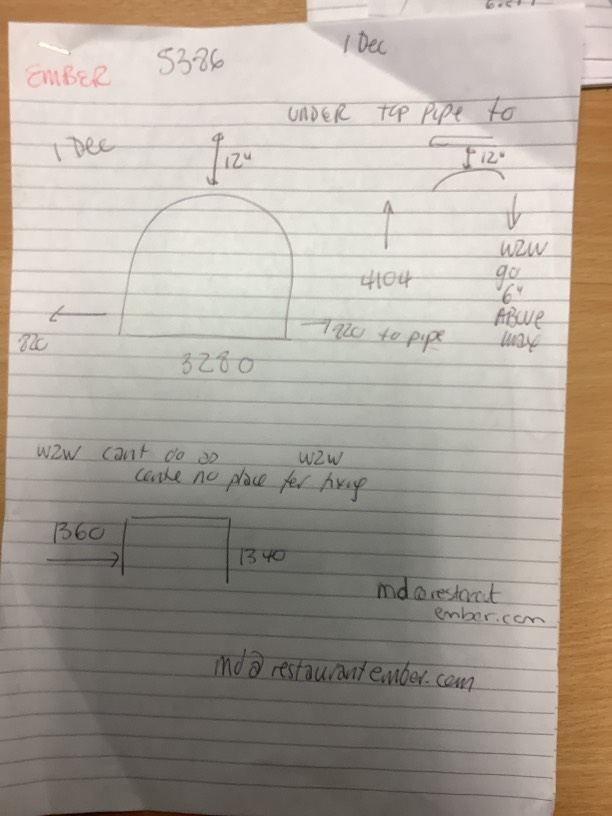 1 Dec
EMBER 5386
UNDER top pipe to
1 Dec
12"
12"
4104
W2W
go
6"
ABOVE
max
820
820 to pipe
3280
W2W cant do as W2W
centre no place for fixing
1360
1340
md@restarat
ember.com
md@restaurantember.com